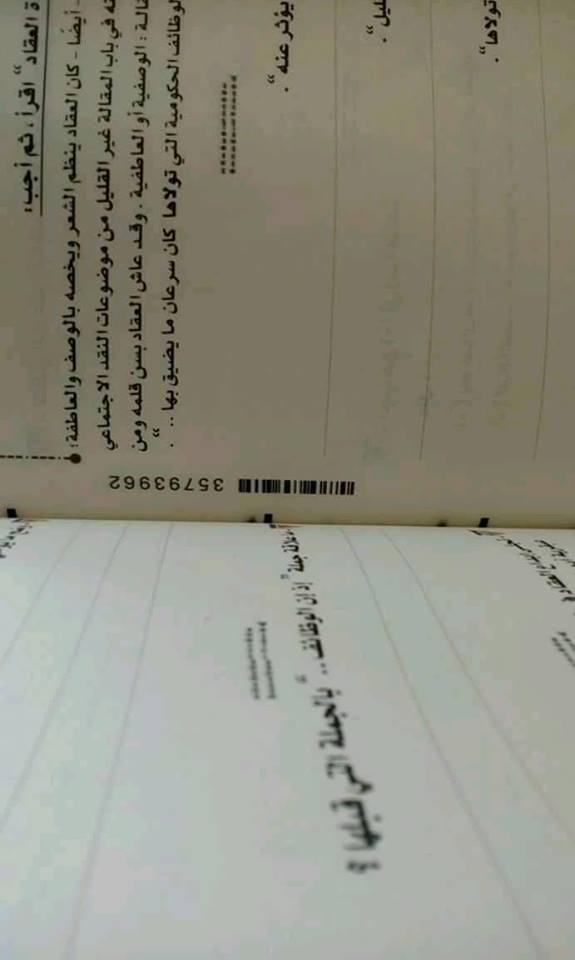 ة العقاد " اقرأ ، ثم أجب :
- أيضًا - كان العقاد ينظم الشعر ويخصه بالوصف والعاطفة ؛
في باب المقالة غير القليل من موضوعات النقد الاجتماعي
الة : الوصفية أو العاطفية . وقد عاش العقاد بسن قلمه ومن
لوظائف الحكومية التي تولاها كان سرعان ما يضيق بها .. " .
يؤثر عنه " .
ليل " .
تولاها " .
35793962
جملة " إذ إن الوظائف .. " بالجملة التي قبلها ؟